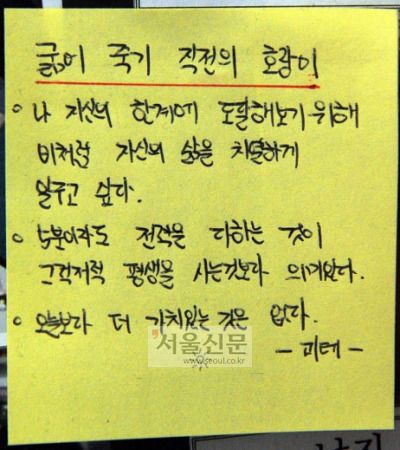 굶어 죽기 직전의 호랑이
○ 나 자신의 한계에 도달해보기 위해
자신의 삶을 치열하게
일구고 싶다.
○ 5분이라도 전력을 다하는 것이
그럭저럭 평생을 사는것보다 의미있다.
○ 오늘보다 더 가치있는 것은 없다.
서울신문
www.seoul.co.kr
- 괴테 -